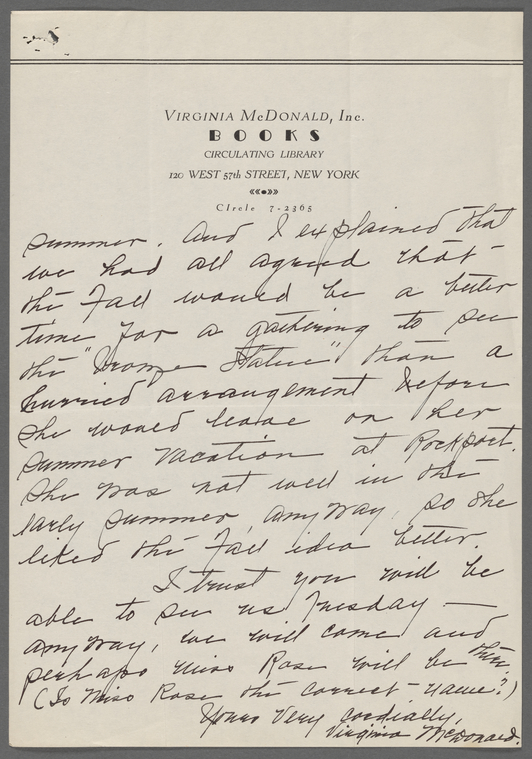 VIRGINIA McDONALD, Inc.
BOOKS
CIRCULATING LIBRARY
120 WEST 57th STREET, NEW YORK
CIrcle 7-2365
summer. And I explained that
we had all agreed that
the Fall would be a better
time for a gathering to see
the "bronze Statue" than a
hurried arrangement before
she would leave on her
summer vacation at Rockport.
She was not well in the
early summer, anyway, so she
liked the Fall idea better.
I trust you will be
able to see us Tuesday —
anyway, we will come and
perhaps Miss Rose will be there.
(Is Miss Rose the correct name?)
Yours Very Cordially,
Virginia McDonald.